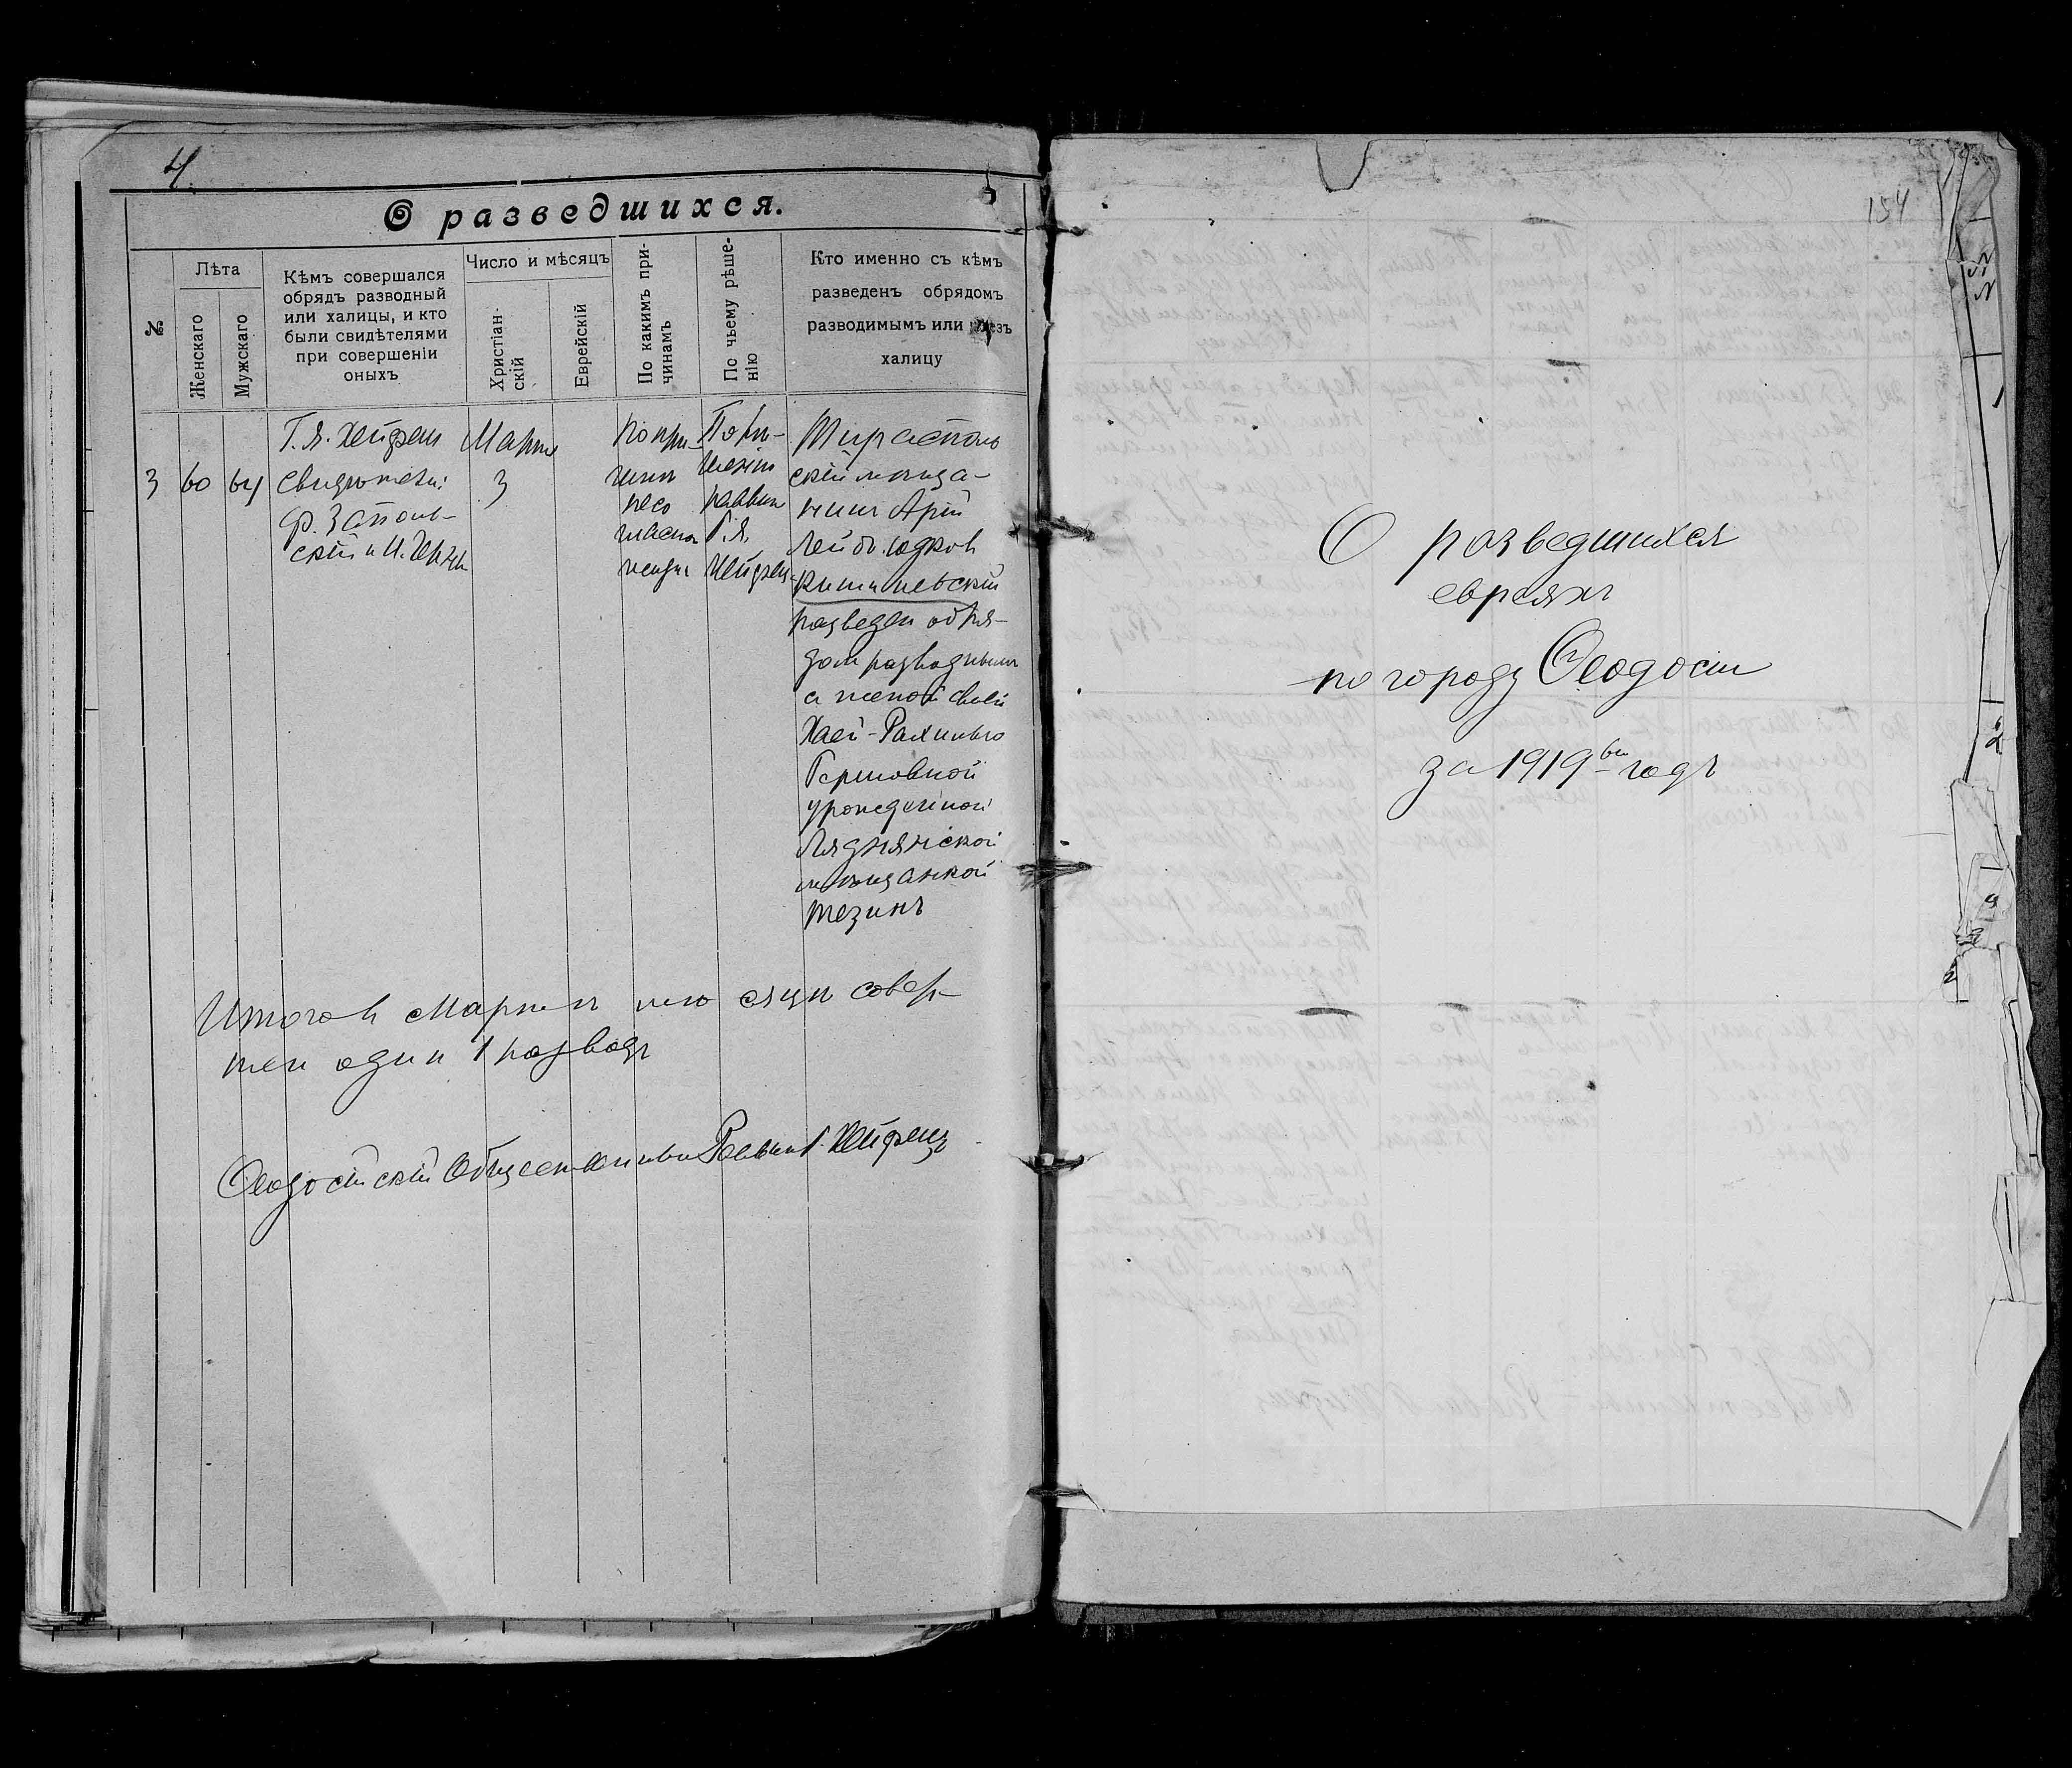 4
О разведшихся.
№
Лѣта
Женскаго
Мужскаго
Кѣмъ совершался
обрядъ разводный
или халицы, и кто
были свидѣтелями
при совершеніи
оныхъ
Число и мѣсяцъ
Христіан-
скій
Еврейскій
По какимъ при-
чинамъ
По чьему рѣше-
нію
Кто именно съ кѣмъ
разведенъ обрядомъ
разводимымъ или чрезъ
халицу
3
60
64
Г. Я. Хейфец
свидѣтели:
Ф. Заполь-
скій и И.
Марта
3
По при-
чинѣ
несо
гласной
жизни
По рѣ-
шенію
раввина
Г. Я.
Хейфец
Тирасполь
скій мѣща-
нинъ Арій
Лейб. Юдков
Кишиневскій
разведен обря-
дом разводным
с женой своей
Хаей-Рахилью
Гершовной
урожденной
Ляднянской
мѣщанкой
Тезинъ
Итого в Мартѣ мѣсяцѣ совер-
шен один 1 разводъ
Ѳеодосійскій Общественный Раввин Г. Хейфецъ
154
О разведшихся
евреяхъ
по городу Ѳеодосіи
за 1919 годъ
1
2